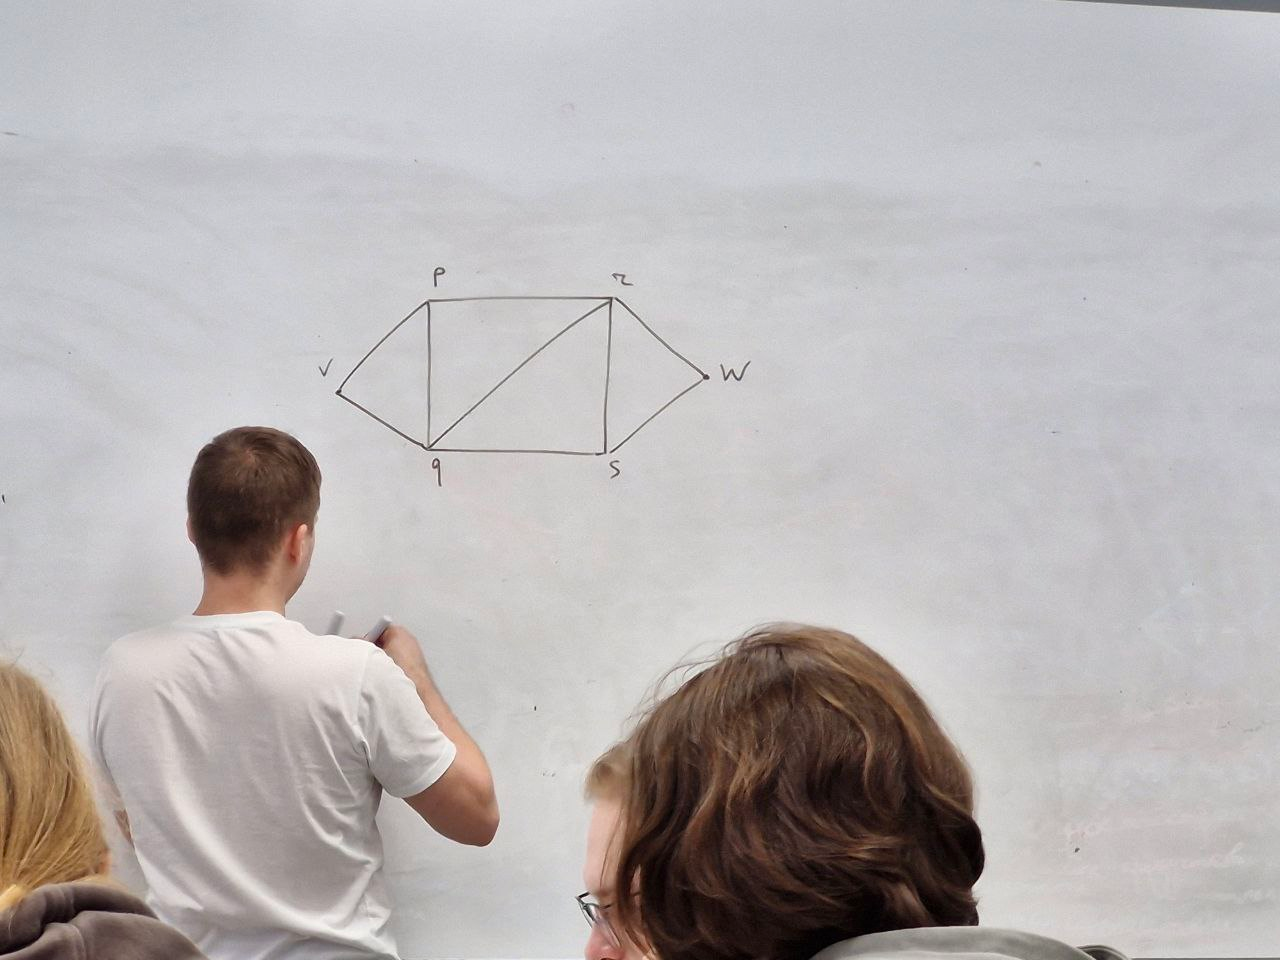 p r
v W
q s